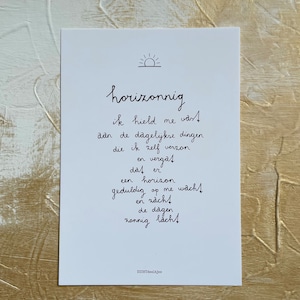 horizonnig
ik hield me vast
aan de dagelijkse dingen
die ik zelf verzon
en vergat
dat er
een horizon
geduldig op me wacht
en zacht
de dagen
zonnig lacht